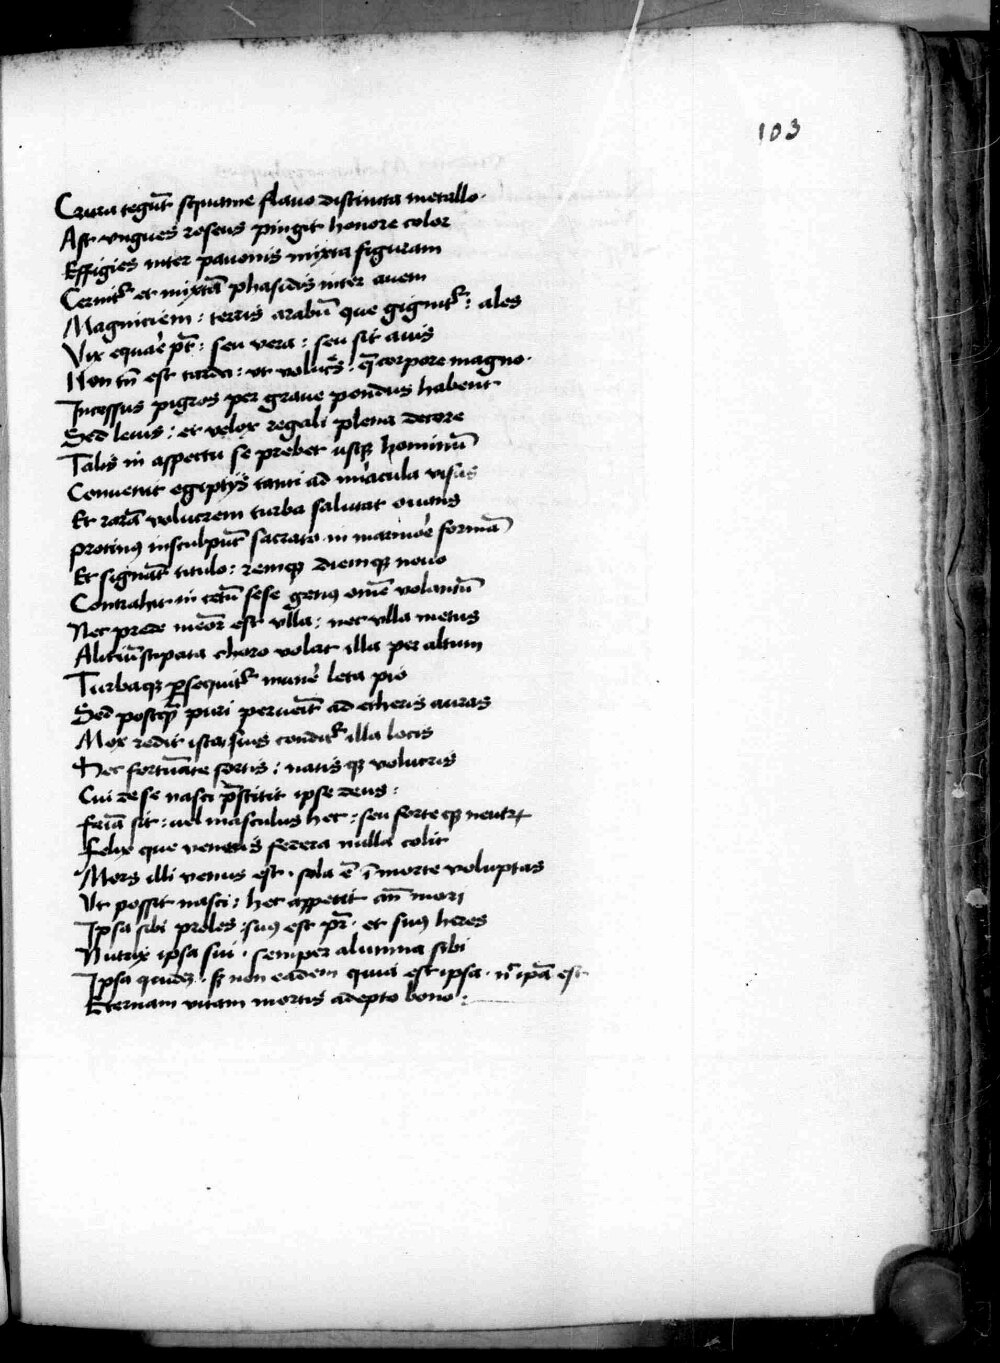 103
Crura tegūt squame flauo distincta metallo·
Ast vngues roseus pingit honore color
Effigies inter pauonis mixta figuram
Cernitꝛ et mixtā phasidis inter auem
Magniciem : terris arabū que gignitꝛ : ales
Vix equare pt̄ : seu vera : seu sit auis
Non tn̄ est tarda : vt volucrs̄ · q̄ corpore magno·
Incessus pigros per graue pondus habent
Sed leuis : et velox regali plena decore
Talis in aspectu se prebet usqꝫ hominū
Conuenit egiptijs tanti ad miracula visus
Et rarā volucrem turba salutat ouans
Protinꝰ insculpūt sacrato in marmore formā
Et signāt titulo : remqꝫ diemqꝫ nouo
Contrahit in cetū sese genꝰ omē volantū
Nec prede memor est vlla : nec vlla metus
Alituū stipata choro volat illa per altum
Turbaqꝫ ꝑsequitꝛ munere leta pio
Sed postqꝫ puri peruenit ad etheris auras
Mox redit ista suis conditꝛ illa locis
Hec fortunate sortis : natisqꝫ volucris
Cui de se nasci p̄stitit ipse deus :
feīa sit : uel masculus hec : seu forte qꝫ neutrꝝ
Felix que veneris federa nulla colit
Mors illi venus est · sola ē ī morte voluptas
Vt possit nasci : hec appetit an̄ mori
Ipsa sibi proles : suꝰ est pr̄ · et suꝰ heres
Nutrix ipsa sui · semper alumna sibi
Ipsa quidez · sꝫ non eadem quia est ipsa · nͨ ipā est
Eternam vitam mortis adepto bono :